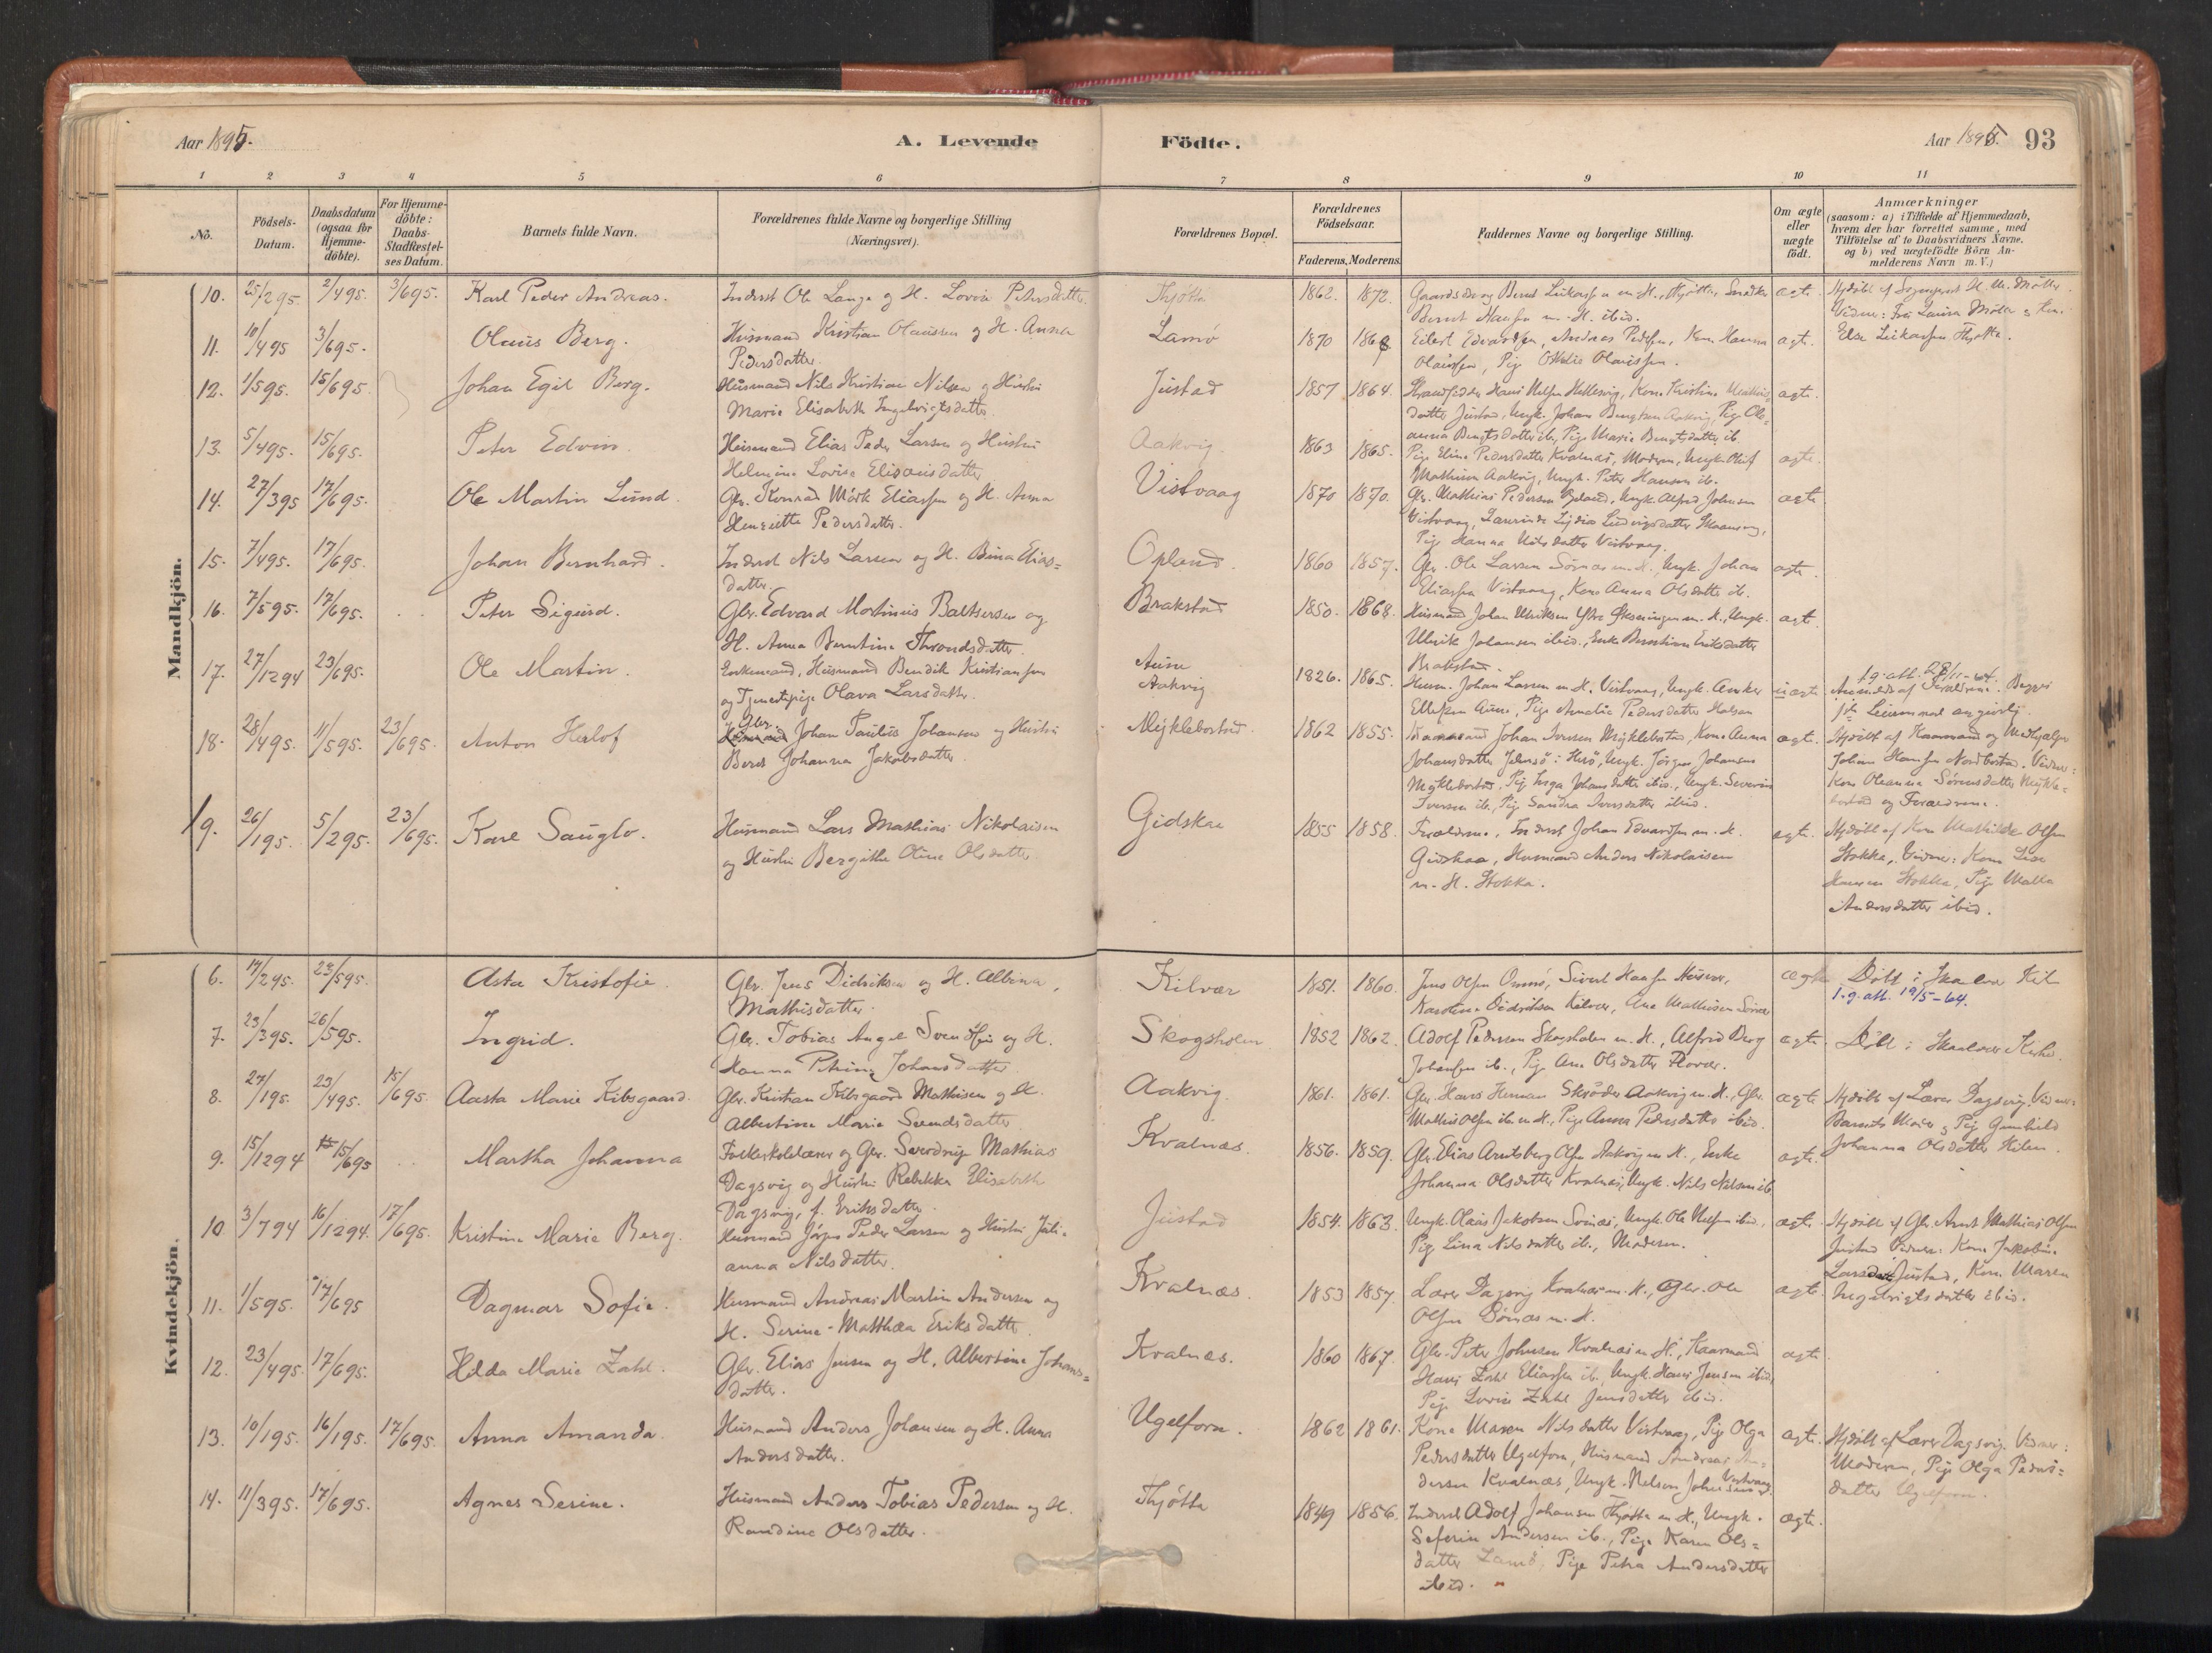 Aar 1895.
A. Levende
Födte.
Aar 1895.
93
1 2 3 4 5 6 7 8 9 10 11
No.
Födsels-Datum.
Daabsdatum (ogsaa for Hjemme-döbte).
For Hjemme-döbte: Daabs-Stadfæstel-ses Datum.
Barnets fulde Navn.
Forældrenes fulde Navne og borgerlige Stilling
(Næringsvei).
Forældrenes Bopæl.
Forældrenes Födselsaar.
Faderens. Moderens.
Faddernes Navne og borgerlige Stilling.
Om ægte eller uægte födt.
Anmærkninger
(saasom: a) i Tilfælde af Hjemmedaab,
hvem der har forrettet samme, med
Tilföielse af to Daabsvidners Navne.
og b) ved uægtefödte Börn An-
melderens Navn m. V.)
Mandkjön.
10. 25/2 95. 2/4 95. 3/6 95. Karl Peder Andreas.
Inderst Ole Lange og H. Lovise Petersdatter
Thjötta 1862. 1872.
Bernt Hansen m. H. ibid.
ægte.
Else Leikarsen Thjötta.
11. 10/4 95 3/6 95. Olaus Berg.
Husmand Kristian Olaussen og H. Anna
Pedersdatter.
Lamö 1870 1868
Eilert Edvardsen, Andreas Pedersen, Kone Hanna
Olaussen, Pige Othelie Olaussen.
ægte.
12. 1/5 95. 15/6 95 Johan Egil Berg.
Husmand Nils Kristian Nilsen og Hustru
Marie Elisabeth Ingebrigtsdatter.
Justad 1857 1864.
datter Justad, Ungk. Johan Bengtsen Aakvig, Pige Ole-
anna Bengtsdatter ib., Pige Marie Bengtsdatter ib.
ægte.
13. 5/4 95. 15/6 95. Peter Edvin.
Husmand Elias Peder Larsen og Hustru
Helmine Lovise Eliseusdatter
Aakvig. 1863 1865.
Pige Eline Pedersdatter Kvalnæs, Moderen, Ungk. Oluf
Mathisen Aakvig, Ungk. Peter Hansen ib.
ægte.
14. 27/3 95 17/6 95. Ole Martin Lund.
Gbr. Konrad Mörk Eliassen og H. Anna
Henriette Pedersdatter.
Vistvaag 1870 1870.
Gbr. Mathias Pedersen Opland, Ungk. Alfred Johnsen
Pige Hanna Nilsdatter Vistvaag.
ægte
15. 7/4 95. 17/6 95. Johan Bernhard.
Inderst Nils Larsen og H. Bina Elias-
datter
Opland. 1860 1857.
Gbr. Ole Larsen Sörnæs m. H., Ungk. Johan
Eliassen Vistvaag, Kone Anna Olsdatter ib.
ægte.
16. 7/5 95. 17/6 95. Peter Sigurd.
Gbr. Edvard Martinius Baltsersen og
H. Anna Berntine Throndsdatter
Brakstad 1850. 1868.
Husmand Johan Ulriksen
Ulrik Johansen ibid., Enke
Brakstad.
ægte.
17. 27/12 94 23/6 95. Ole Martin.
Enkemand, Husmand Bendik Kristiansen
og Tjenestepige Olava Larsdatter.
Aune
Aakvig
1826. 1865.
Husm. Johan Larsen m. H. Vistvaag, Ungk. Anker
Ellefsen Aune, Pige Amalie Pedersdatter
uægte
Anmeldt af Forældrene. Begges
1ste Leiermaal angivelig.
18. 28/4 95. 11/5 95. 23/6 95. Anton Herlof
Gbr. Johan Paulus Johansen og Hustru
Berit Johanna Jakobsdatter.
Myklebostad. 1862 1855.
Kaarmand Johan Iversen Myklebostad, Kone Anna
Johansdatter
Myklebostad, Pige Inga Johansdatter ibid., Ungk. Severin
Iversen ib., Pige Sandra Iversdatter ibid.
ægte.
Hjdöbt af Kaarmand og Medhjælper
Johan Hansen Nordbostad. Vidner:
Kone Oleanna Sörensdatter Mykle-
bostad og Forældrene.
19. 26/1 95. 5/2 95. 23/6 95. Karl Sauglo.
Husmand Lars Mathias Nikolaisen
og Hustru Bergithe Oline Olsdatter
Gidskaa 1855 1858.
Forældrene, Inderst Johan Edvardsen m. H.
Gidskaa, Husmand Anders Nikolaisen
m. H. Stokka.
ægte.
Hjdöbt af Kone Mathilde Olsen
Stokka, Vidner: Kone Lise
Hansen Stokka, Pige Malla
Andersdatter ibid.
Kvindekjön.
6. 17/2 95. 23/5 95. Asta Kristofie.
Gbr. Jens Didriksen og H. Albina,
Mathisdatter.
Kilvær 1851. 1860.
Jens Olsen Onnö, Sivert Hansen
Karoline Didriksen Kilvær, Ane Mathisen
ægte
Döbt i Skaalvær Kirke
1.g.att. 19/5-64.
7. 23/3 95. 26/5 95. Ingrid.
Gbr. Tobias Angel Svendsen og H.
Hanna Petrine Johansdatter
Skogsholm. 1852 1862.
Adolf Pedersen Skogsholm m. H., Alfred Berg
Johansen ib., Pige Ane Olsdatter
ægte.
Döbt i Skaalvær Kirke.
8. 27/1 95. 23/4 95. 15/6 95. Aasta Marie Kibsgaard.
Gbr. Kristian Kibsgaard Mathisen og H.
Albertine Marie Svendsdatter
Aakvig. 1861. 1861.
Gbr. Hans Herman Schröder Aakvig m. H., Gbr.
Mathis Olsen ib. m. H., Pige Anna Pedersdatter ibid.
ægte
Hjdöbt af Lærer Dagsvig. Vidner:
Barnets Moder og Pige Gunhild
Johanna Olsdatter Hilen.
9. 15/12 94 15/6 95 Martha Johanna
Folkeskolelærer og Gbr. Sverdrup Mathias
Dagsvig og Hustru Rebekka Elisabeth
Dagsvig, f. Eriksdatter.
Kvalnæs. 1856. 1859.
Gbr. Elias Arntsberg Olsen Aakvig m. H., Enke
Johanna Olsdatter Kvalnæs, Ungk. Nils Nilsen ib.
ægte.
10 3/7 94 16/12 94. 17/6 95. Kristine Marie Berg.
Husmand Jörgen Peder Larsen og Hustru Juli-
anna Nilsdatter.
Justad 1854. 1863.
Ungk. Olaus Jakobsen Sörnæs, Ungk. Ole Nilsen ibid.,
Pige Lina Nilsdatter ib., Moderen.
ægte.
Hjdöbt af Gbr. Arnt Mathias Olsen
Justad Vidner: Kone Jakobine
Larsdatter Justad, Kone Maren
Ingebrigtsdatter ibid.
11. 1/5 95. 17/6 95 Dagmar Sofie.
Husmand Andreas Martin Andersen og
H. Serine-Mathea Eriksdatter
Kvalnæs. 1853 1857.
Lærer Dagsvig Kvalnæs m. H., Gbr. Ole
Olsen Sörnæs m. H.
ægte.
12. 23/4 95. 17/6 95. Hilda Marie Zahl.
Gbr. Elias Jensen og H. Albertine Johans-
datter.
Kvalnæs. 1860 1867.
Gbr. Peter Johnsen Kvalnæs m. H., Kaarmand
Hans Zahl Eliassen ib., Ungk. Hans Jensen ibid.
Pige Lovise Zahl Jensdatter ibid.
ægte.
13. 10/1 95. 16/1 95. 17/6 95. Anna Amanda.
Husmand Anders Johansen og H. Anna
Andersdatter.
Ugelforn. 1862 1861.
Kone Maren Nilsdatter Vistvaag, Pige Olga
Pedersdatter Ugelforn, Husmand Andreas An-
dersen Kvalnæs, Ungk. Nelson Johnsen Vistvaag
ægte.
Hjdöbt af Lærer Dagsvig. Vidner:
Moderen, Pige Olga Peders-
datter Ugelforn.
14. 11/3 95. 17/6 95. Agnes Serine.
Husmand Anders Tobias Pedersen og H.
Randine Olsdatter.
Thjötta 1849 1856.
Inderst Adolf Johansen Thjötta m. H., Ungk.
Seferin Andersen ib., Pige Karen Ols-
datter Lamö, Pige Petra Andersdatter
ibid.
ægte.